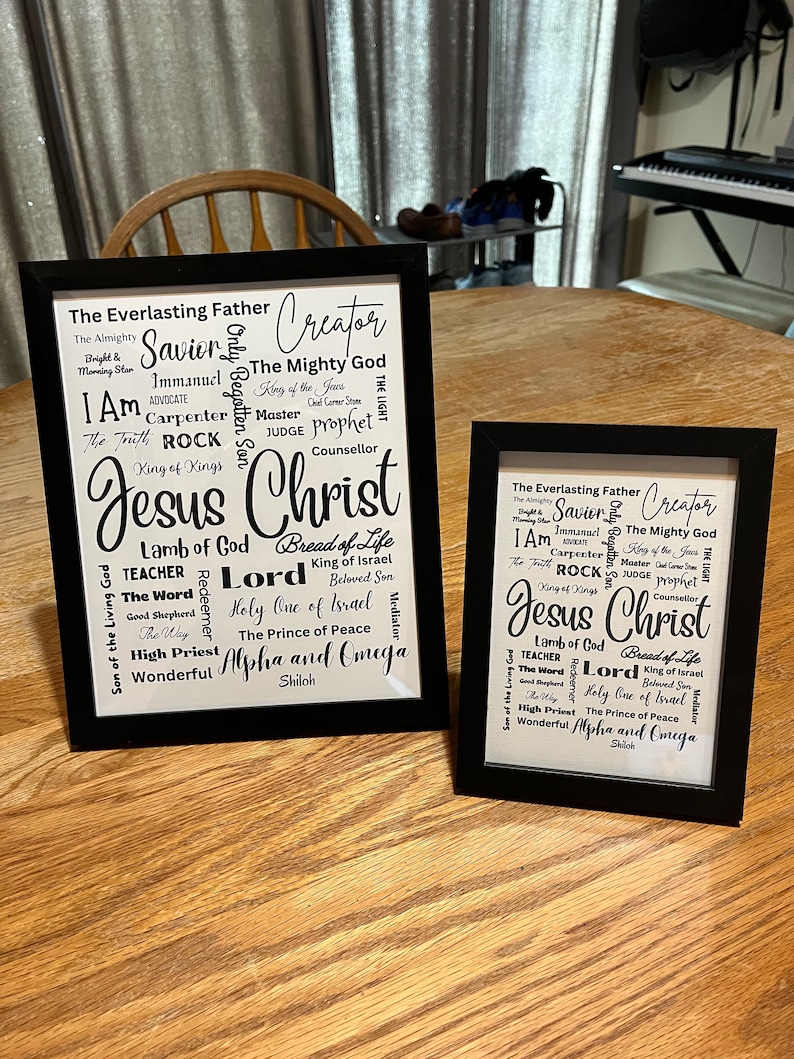 The Everlasting Father
Creator
The Almighty
Savior
Only Begotten Son
Bright &
Morning Star
The Mighty God
Immanuel
King of the Jews
THE LIGHT
I Am
ADVOCATE
Chief Corner Stone
Carpenter
Master
prophet
The Truth
ROCK
JUDGE
Counsellor
King of Kings
Jesus Christ
Lamb of God
Bread of Life
Son of the Living God
TEACHER
Redeemer
Lord
King of Israel
Beloved Son
The Word
Good Shepherd
Holy One of Israel
Mediator
The Way
The Prince of Peace
High Priest
Alpha and Omega
Wonderful
Shiloh
The Everlasting Father
Creator
The Almighty
Savior
Only Begotten Son
Bright &
Morning Star
The Mighty God
Immanuel
King of the Jews
THE LIGHT
I Am
ADVOCATE
Chief Corner Stone
Carpenter
Master
prophet
The Truth
ROCK
JUDGE
Counsellor
King of Kings
Jesus Christ
Lamb of God
Bread of Life
Son of the Living God
TEACHER
Redeemer
Lord
King of Israel
Beloved Son
The Word
Good Shepherd
Holy One of Israel
Mediator
The Way
The Prince of Peace
High Priest
Alpha and Omega
Wonderful
Shiloh